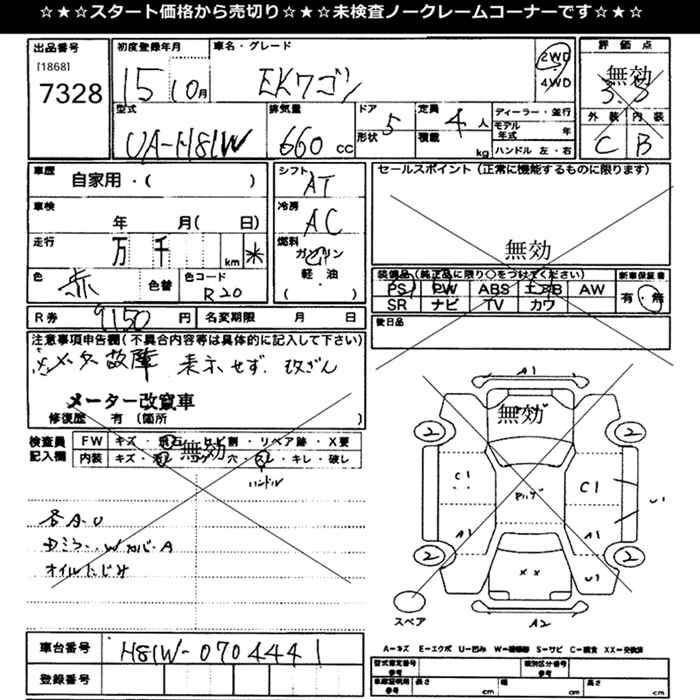 ☆★☆★スタート価格から売切り☆★☆★未検査ノークレームコーナーです☆★☆
出品番号
[1868]
7328
初度登録年月
15 10月
車名・グレード
EKワゴン
2WD
4WD
評価点
無効
3.5
外装 内装
C B
型式
UA-H81W
排気量
660 cc
ドア
形状
5
定員
積載
4 人
kg
ディーラー・並行
モデル年式 年
ハンドル 左・右
車歴
自家用・( )
車検
年 月( 日)
走行
万 千 km ※
色
赤
色替
色コード
R20
シフト
AT
冷房
AC
燃料
ガソリン
軽・油
( )
セールスポイント (正常に機能するものに限ります)
無効
装備品(純正品に限り○をつけてください)
PS PW ABS エアB AW
SR ナビ TV カワ
新車保証書
有・無
後日品
R券 9150 円
名変期限 月 日
注意事項申告欄(不具合内容等は具体的に記入して下さい)
※メーター故障 表示せず 改ざん
メーター改竄車
修復歴 有 (箇所 )
検査員
記入欄
FW キズ・飛石・ヒビ割・リペア跡・X要
内装 キズ・汚レ・コゲ・穴・スレ・キレ・破レ
無効
ハンドル
各A.U
オイルにじみ
無効
A1
2 2
C1 C1
U1
A1 A1
2 2
XX
U1
スペア
A2
A=キズ E=エクボ U=凹み W=補修跡 S=サビ C=腐食 XX=交換済
車台番号
H81W-0704441
登録番号
型式指定番号
参考
類別区分番号
参考
車庫証明用
参考
長さ cm 幅 cm 高さ cm